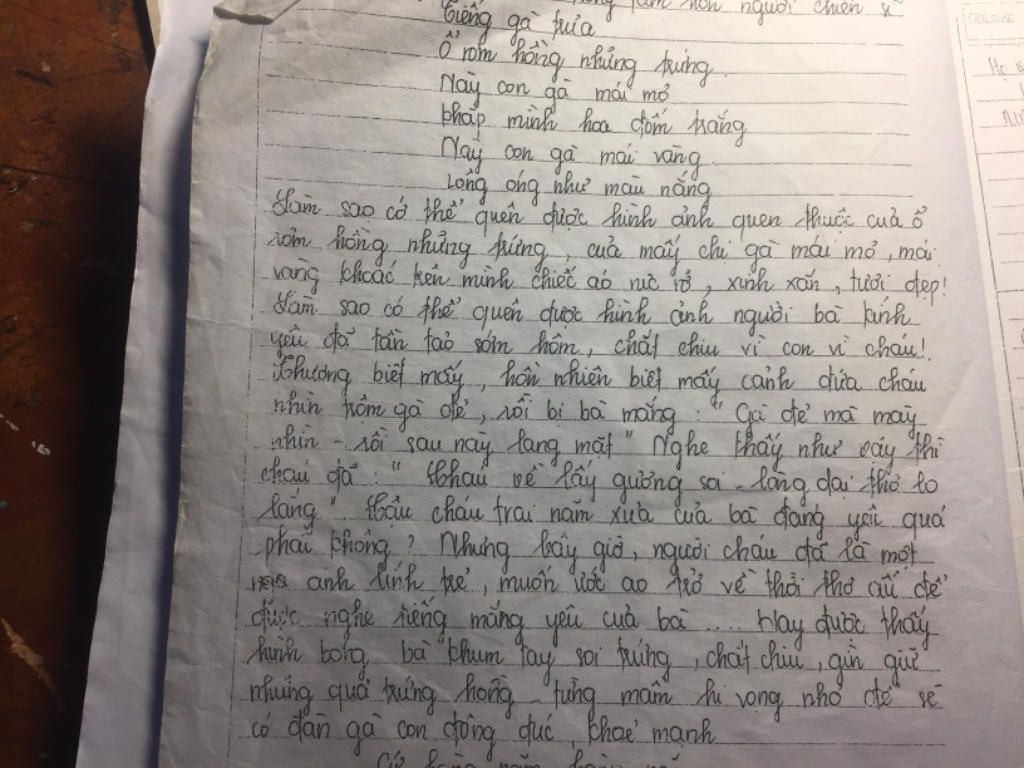 tâm hồn người chiến sĩ
Tiếng gà trưa
Ổ rơm hồng những trứng.
Này con gà mái mơ
Khắp mình hoa đốm trắng
Này con gà mái vàng
Lông óng như màu nắng
Làm sao có thể quên được hình ảnh quen thuộc của ổ
rơm hồng những trứng, của mấy chị gà mái mơ, mái
vàng khoác trên mình chiếc áo rực rỡ, xinh xắn, tươi đẹp!
Làm sao có thể quên được hình ảnh người bà kính
yêu đã tần tảo sớm hôm, chắt chiu vì con vì cháu!
Thương biết mấy, hồn nhiên biết mấy cảnh đứa cháu
nhìn trộm gà đẻ, rồi bị bà mắng: "Gà đẻ mà mày
nhìn - rồi sau này lang mặt" Nghe thấy như vậy thì
cháu đã: "Cháu về lấy gương soi - lòng dại thơ lo
lắng" Cậu cháu trai năm xưa của bà đáng yêu quá
phải không? Nhưng bây giờ, người cháu đã là một
anh lính trẻ, muốn ước ao trở về thời thơ ấu để
được nghe tiếng mắng yêu của bà .... Hay được thấy
hình bóng bà khum tay soi trứng, chắt chiu, gìn giữ
những quả trứng hồng - từng mầm hi vọng nhỏ để sẽ
có đàn gà con đông đúc, khoẻ mạnh